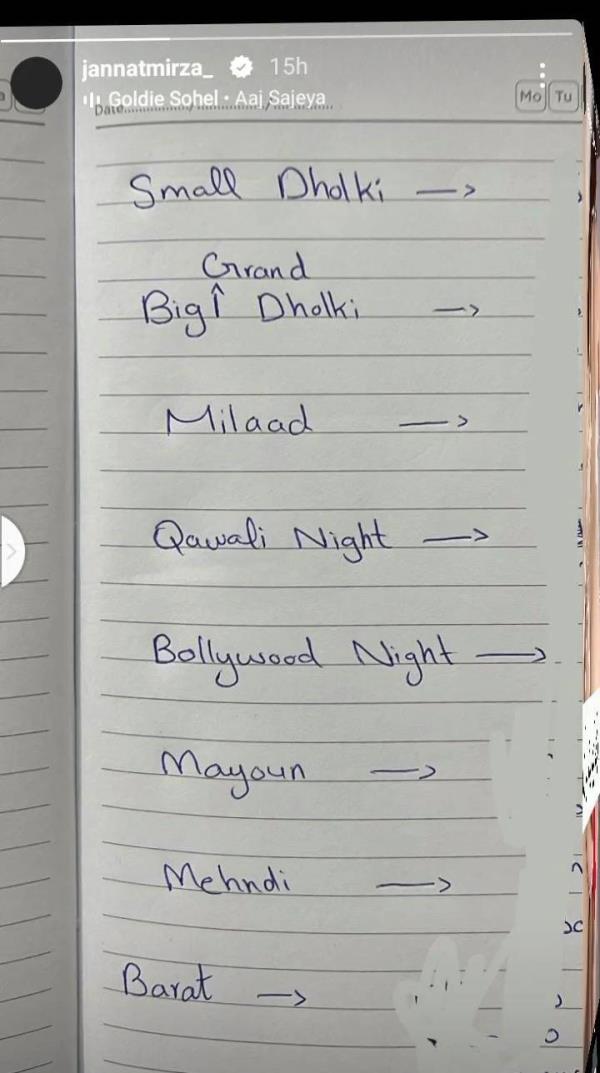 jannatmirza_ 15h
Goldie Sohel • Aaj Sajeya
Date
Mo Tu
Small Dholki →
Grand
Big^ Dholki →
Milaad →
Qawali Night →
Bollywood Night →
Mayoun →
Mehndi →
Barat →